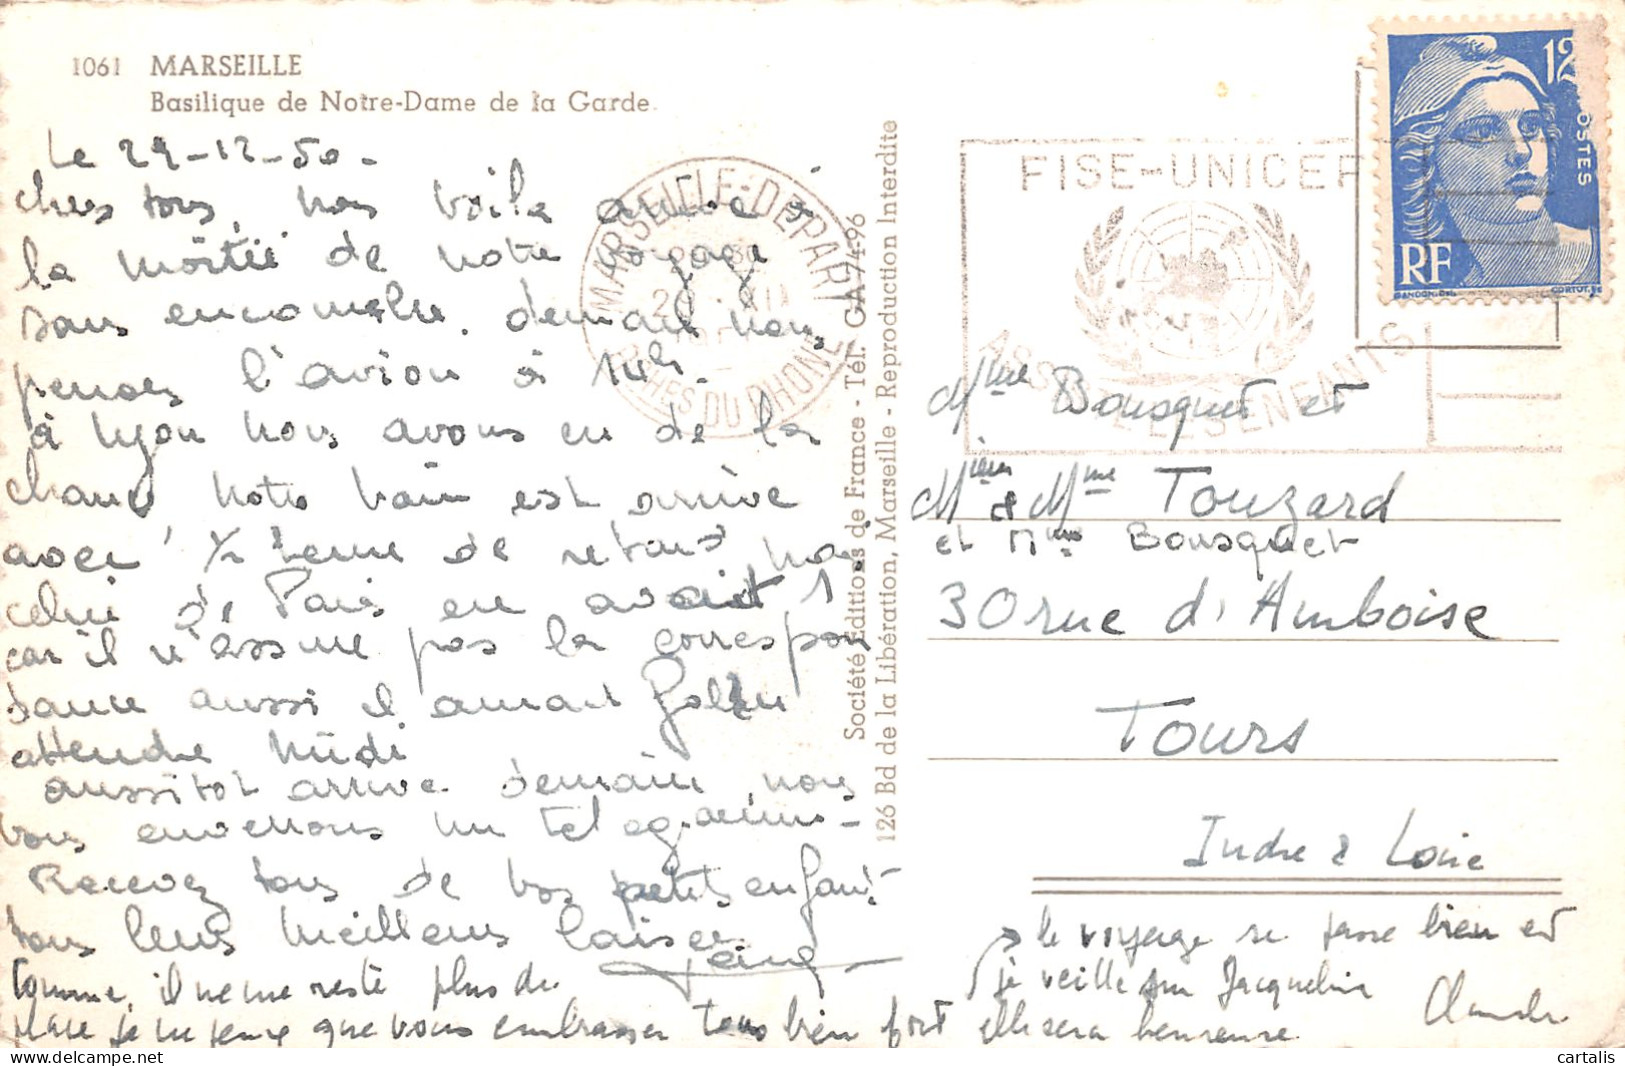 1061 MARSEILLE
Basilique de Notre-Dame de la Garde.
Le 29-12-50-
chers tous, nous voila arrivé à
la moitié de notre voyage
sans encombre. demain nous
prenons l'avion à 14h.
à Lyon nous avons eu de la
chance notre train est arrivé
avec 1/2 heure de retard
celui de Paris en avait 1
car il n'assure pas la correspon
dance aussi il aurait fallu
attendre midi
aussitot arrivé demain nous
vous enverrons un telegramme-
Recevez tous de vos petits enfants
tous leurs meilleurs baisers
Comme, il ne me reste plus de
place je ne peux que vous embrasser tous bien fort
→ le voyage se passe bien et
je veille sur Jacqueline
elle sera heureuse. Claude
Société Editions de France - Tél. GA 74-96
126 Bd de la Libération, Marseille - Reproduction Interdite
MARSEILLE-DEPART
BCHES DU RHONE
FISE-UNICEF
ASSISTE LES ENFANTS
12
POSTES
RF
GANDON.DEL. CORTOT.SC
Mme Bousquet et
Mr & Mme Touzard
et Mme Bousquet
30 rue d'Amboise
Tours
Indre & Loire
cartalis